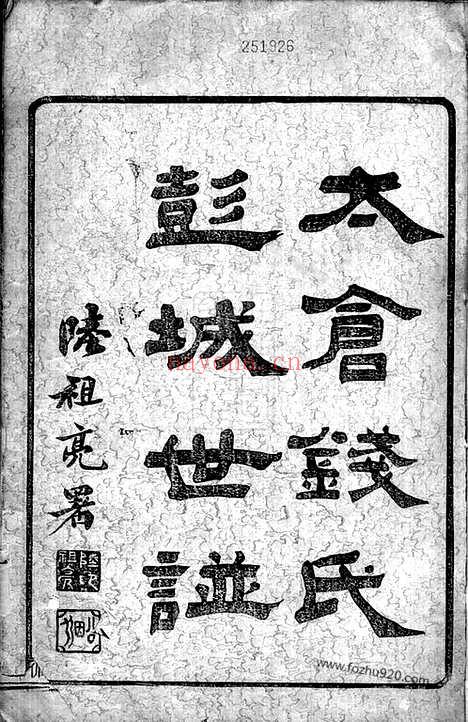 251926
太倉錢氏
彭城世譜
陸祖亮署
nayona.cn
www.fozhu920.com